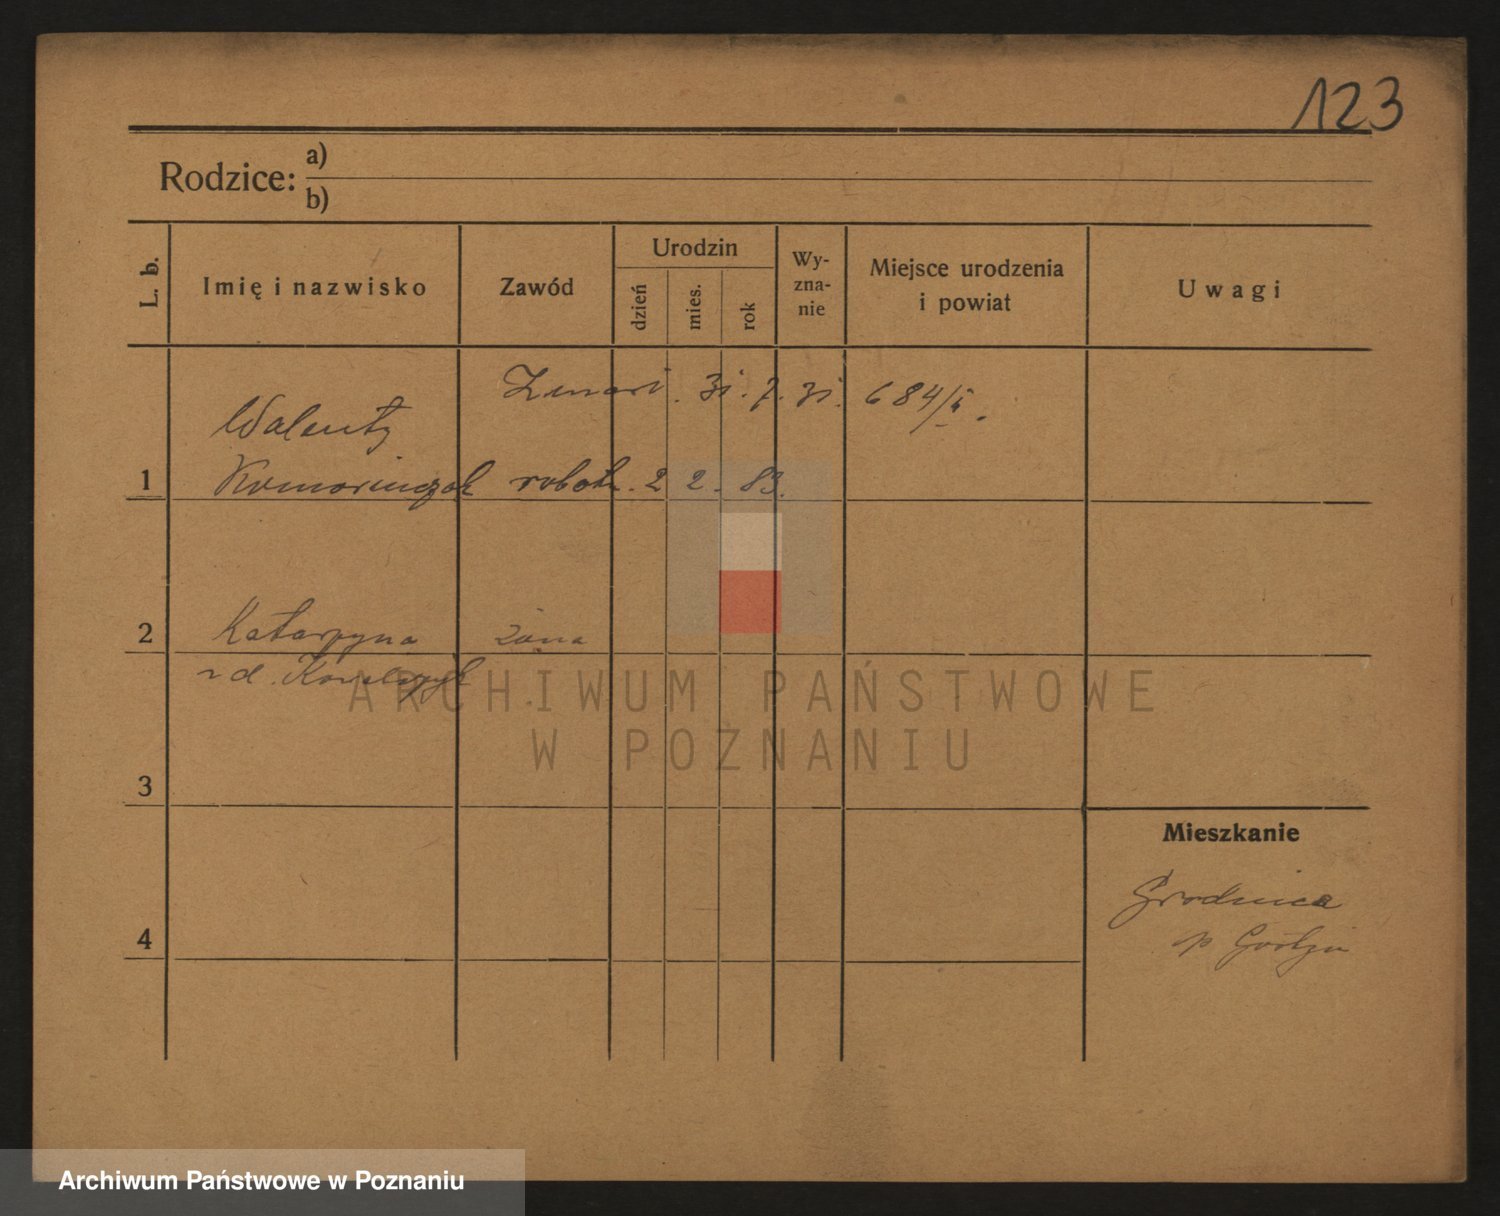 123
Rodzice: a)
b)
L. b. Imię i nazwisko Zawód Urodzin dzień mies. rok Wy-zna-nie Miejsce urodzenia i powiat Uwagi
Zmarł. 31. 7. 31. 684/
Walenty
1 Komorniczak robotn. 2 2. 83.
2 Katarzyna żona
Kowalczyk
3
Mieszkanie
Grodnica
4
p
ARCHIWUM PAŃSTWOWE
W POZNANIU
Archiwum Państwowe w Poznaniu